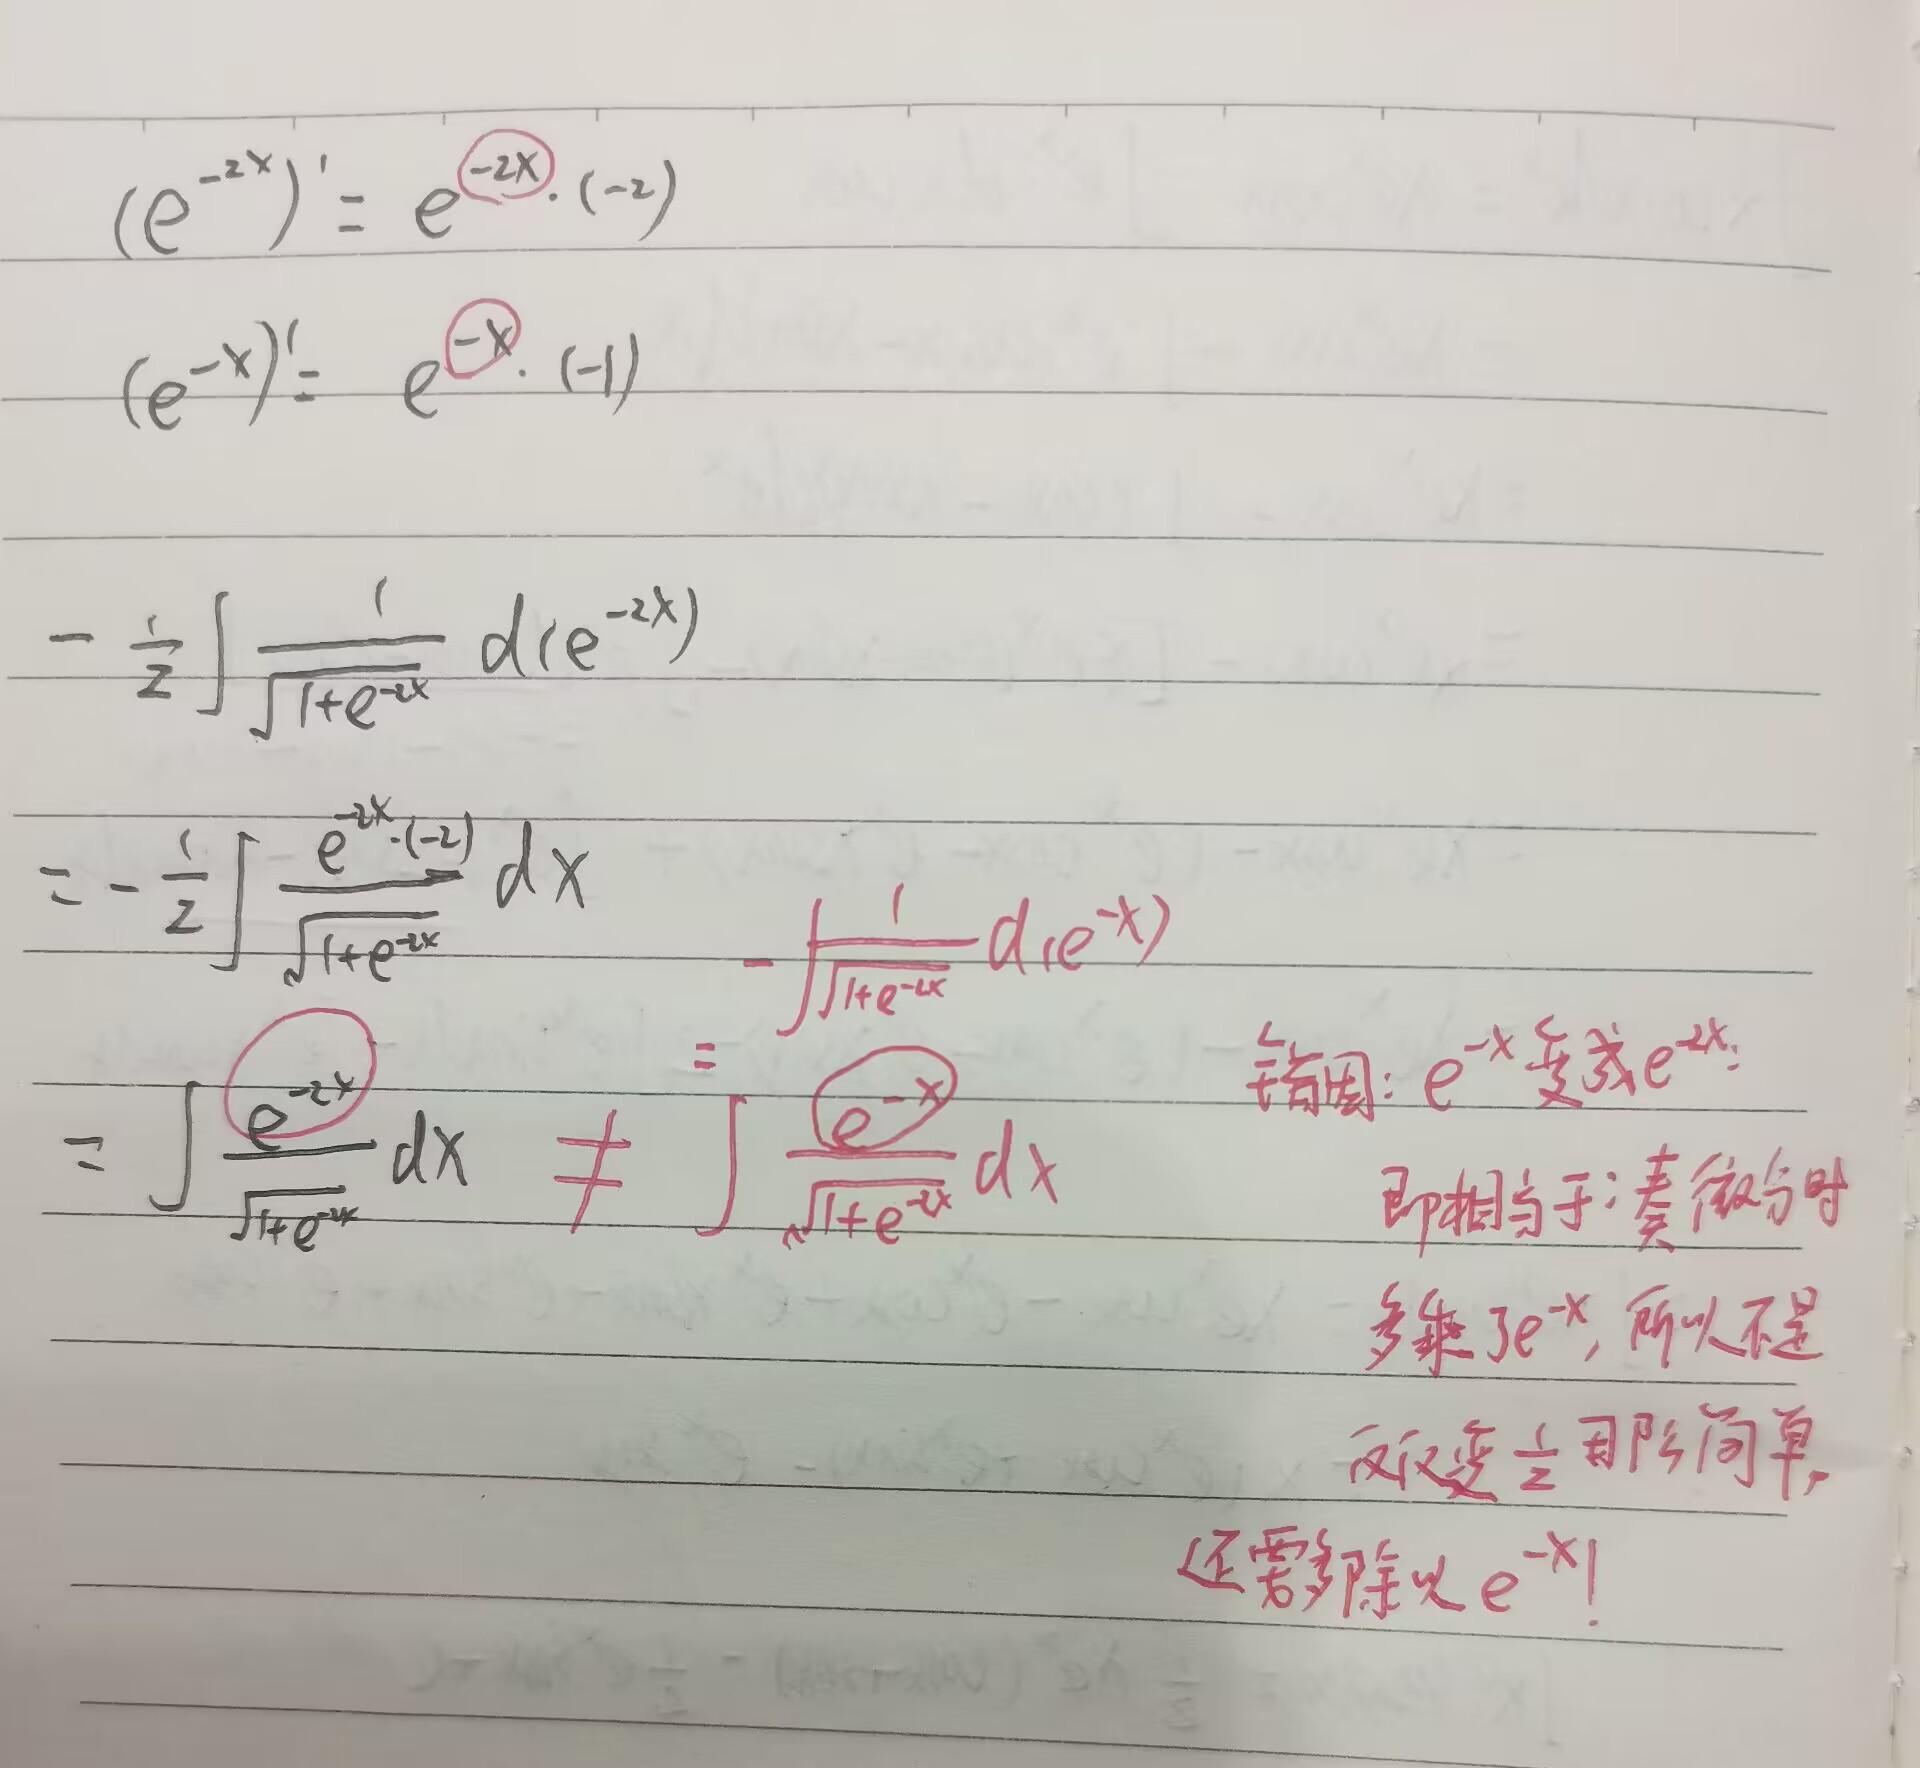 (e^{-2x})' = e^{-2x}·(-2)
(e^{-x})' = e^{-x}·(-1)
-\frac{1}{2}∫\frac{1}{\sqrt{1+e^{-2x}}} d(e^{-2x})
= -\frac{1}{2}∫\frac{e^{-2x}·(-2)}{\sqrt{1+e^{-2x}}} dx
-∫\frac{1}{\sqrt{1+e^{-2x}}} d(e^{-x})
=
= ∫\frac{e^{-2x}}{\sqrt{1+e^{-2x}}} dx ≠ ∫\frac{e^{-x}}{\sqrt{1+e^{-2x}}} dx
错因: e^{-x}变成e^{-2x}:
即相当于:凑微分时
多乘了e^{-x},所以不是
仅仅变\frac{1}{2}那么简单,
还需多除以e^{-x}!